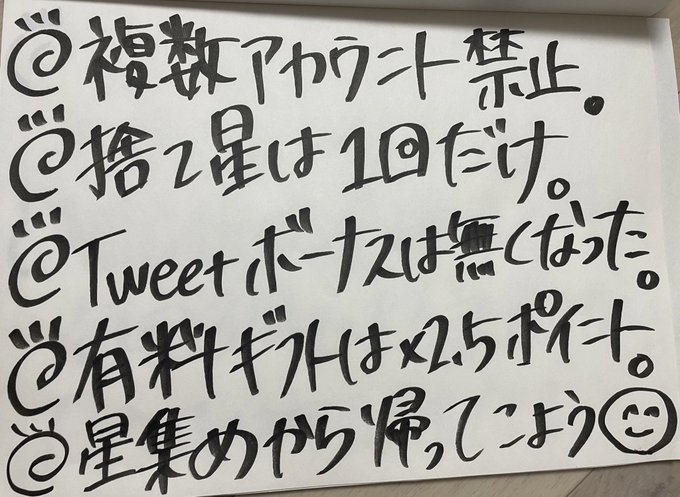 複数アカウント禁止。
捨て星は1回だけ。
Tweetボーナスは無くなった。
有料ギフトは×2.5ポイント。
星集めから帰ってこよう